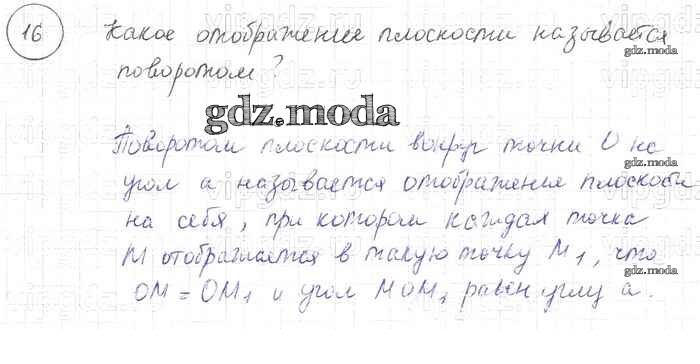 16 Какое отображение плоскости называется
поворотом?
gdz.moda
gdz.moda
Поворотом плоскости вокруг точки О на
угол а называется отображение плоскости
на себя, при котором каждая точка
М отображается в такую точку М₁, что
ОМ = ОМ₁ и угол МОМ₁ равен углу а.
gdz.moda
gdz.moda